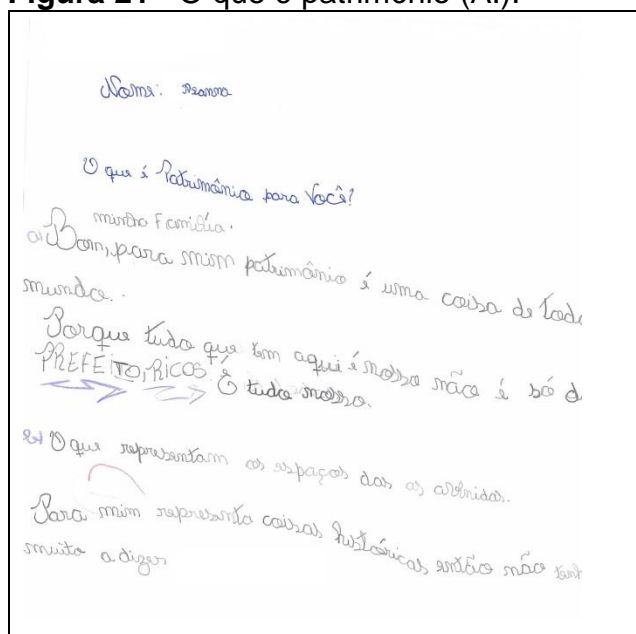 Figura 21 - O que é patrimônio (A.).
Nome:
O que é Patrimônio para Você?
minha Família.
a) Bom, para mim patrimônio é uma coisa de tod
mundo.
Porque tudo que tem aqui é nosso não é só d
PREFEITO, RICOS É tudo nosso.
2) O que representam os espaços das as avenidas.
Para mim representa coisas históricas então não tenh
muito a dizer